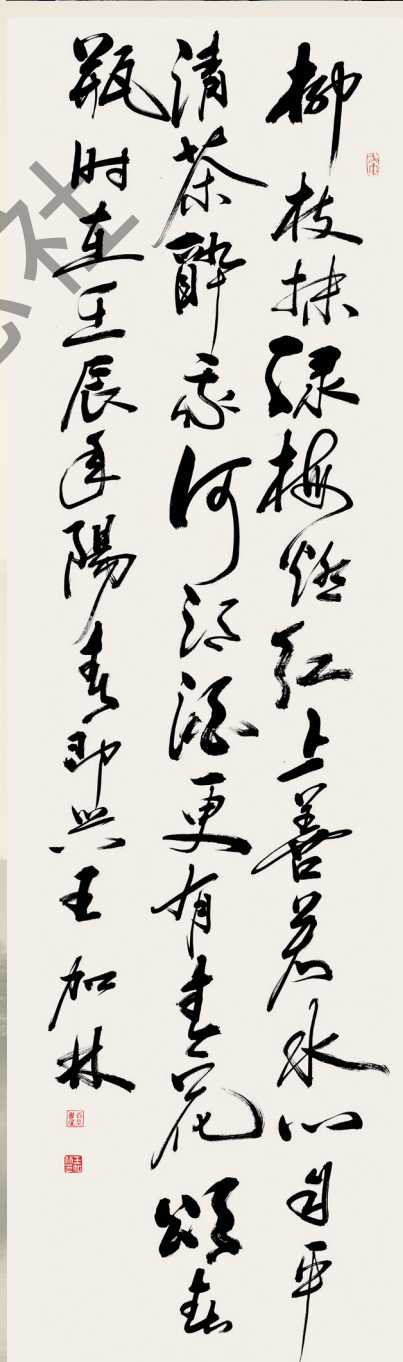 柳枝抹绿梅燃红上善若水心自平
清茶醉我何须酒更有春花颂春
瓶时在壬辰年陽春即兴王加林